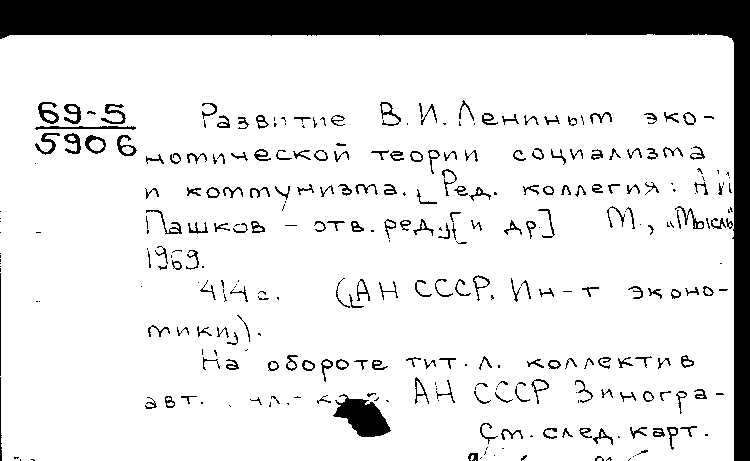 69-5
5906
Развитие В.И.Лениным эко-
номической теории социализма
и коммунизма. [Ред. коллегия: А.И.
Пашков – отв. ред.,] [и др.] М., „Мысль“
1969.
414 с. ([АН СССР. Ин-т эконо-
мики]).
На обороте тит. л. коллектив
авт. чл.-кор. АН СССР Зиногра-
См. след. карт.